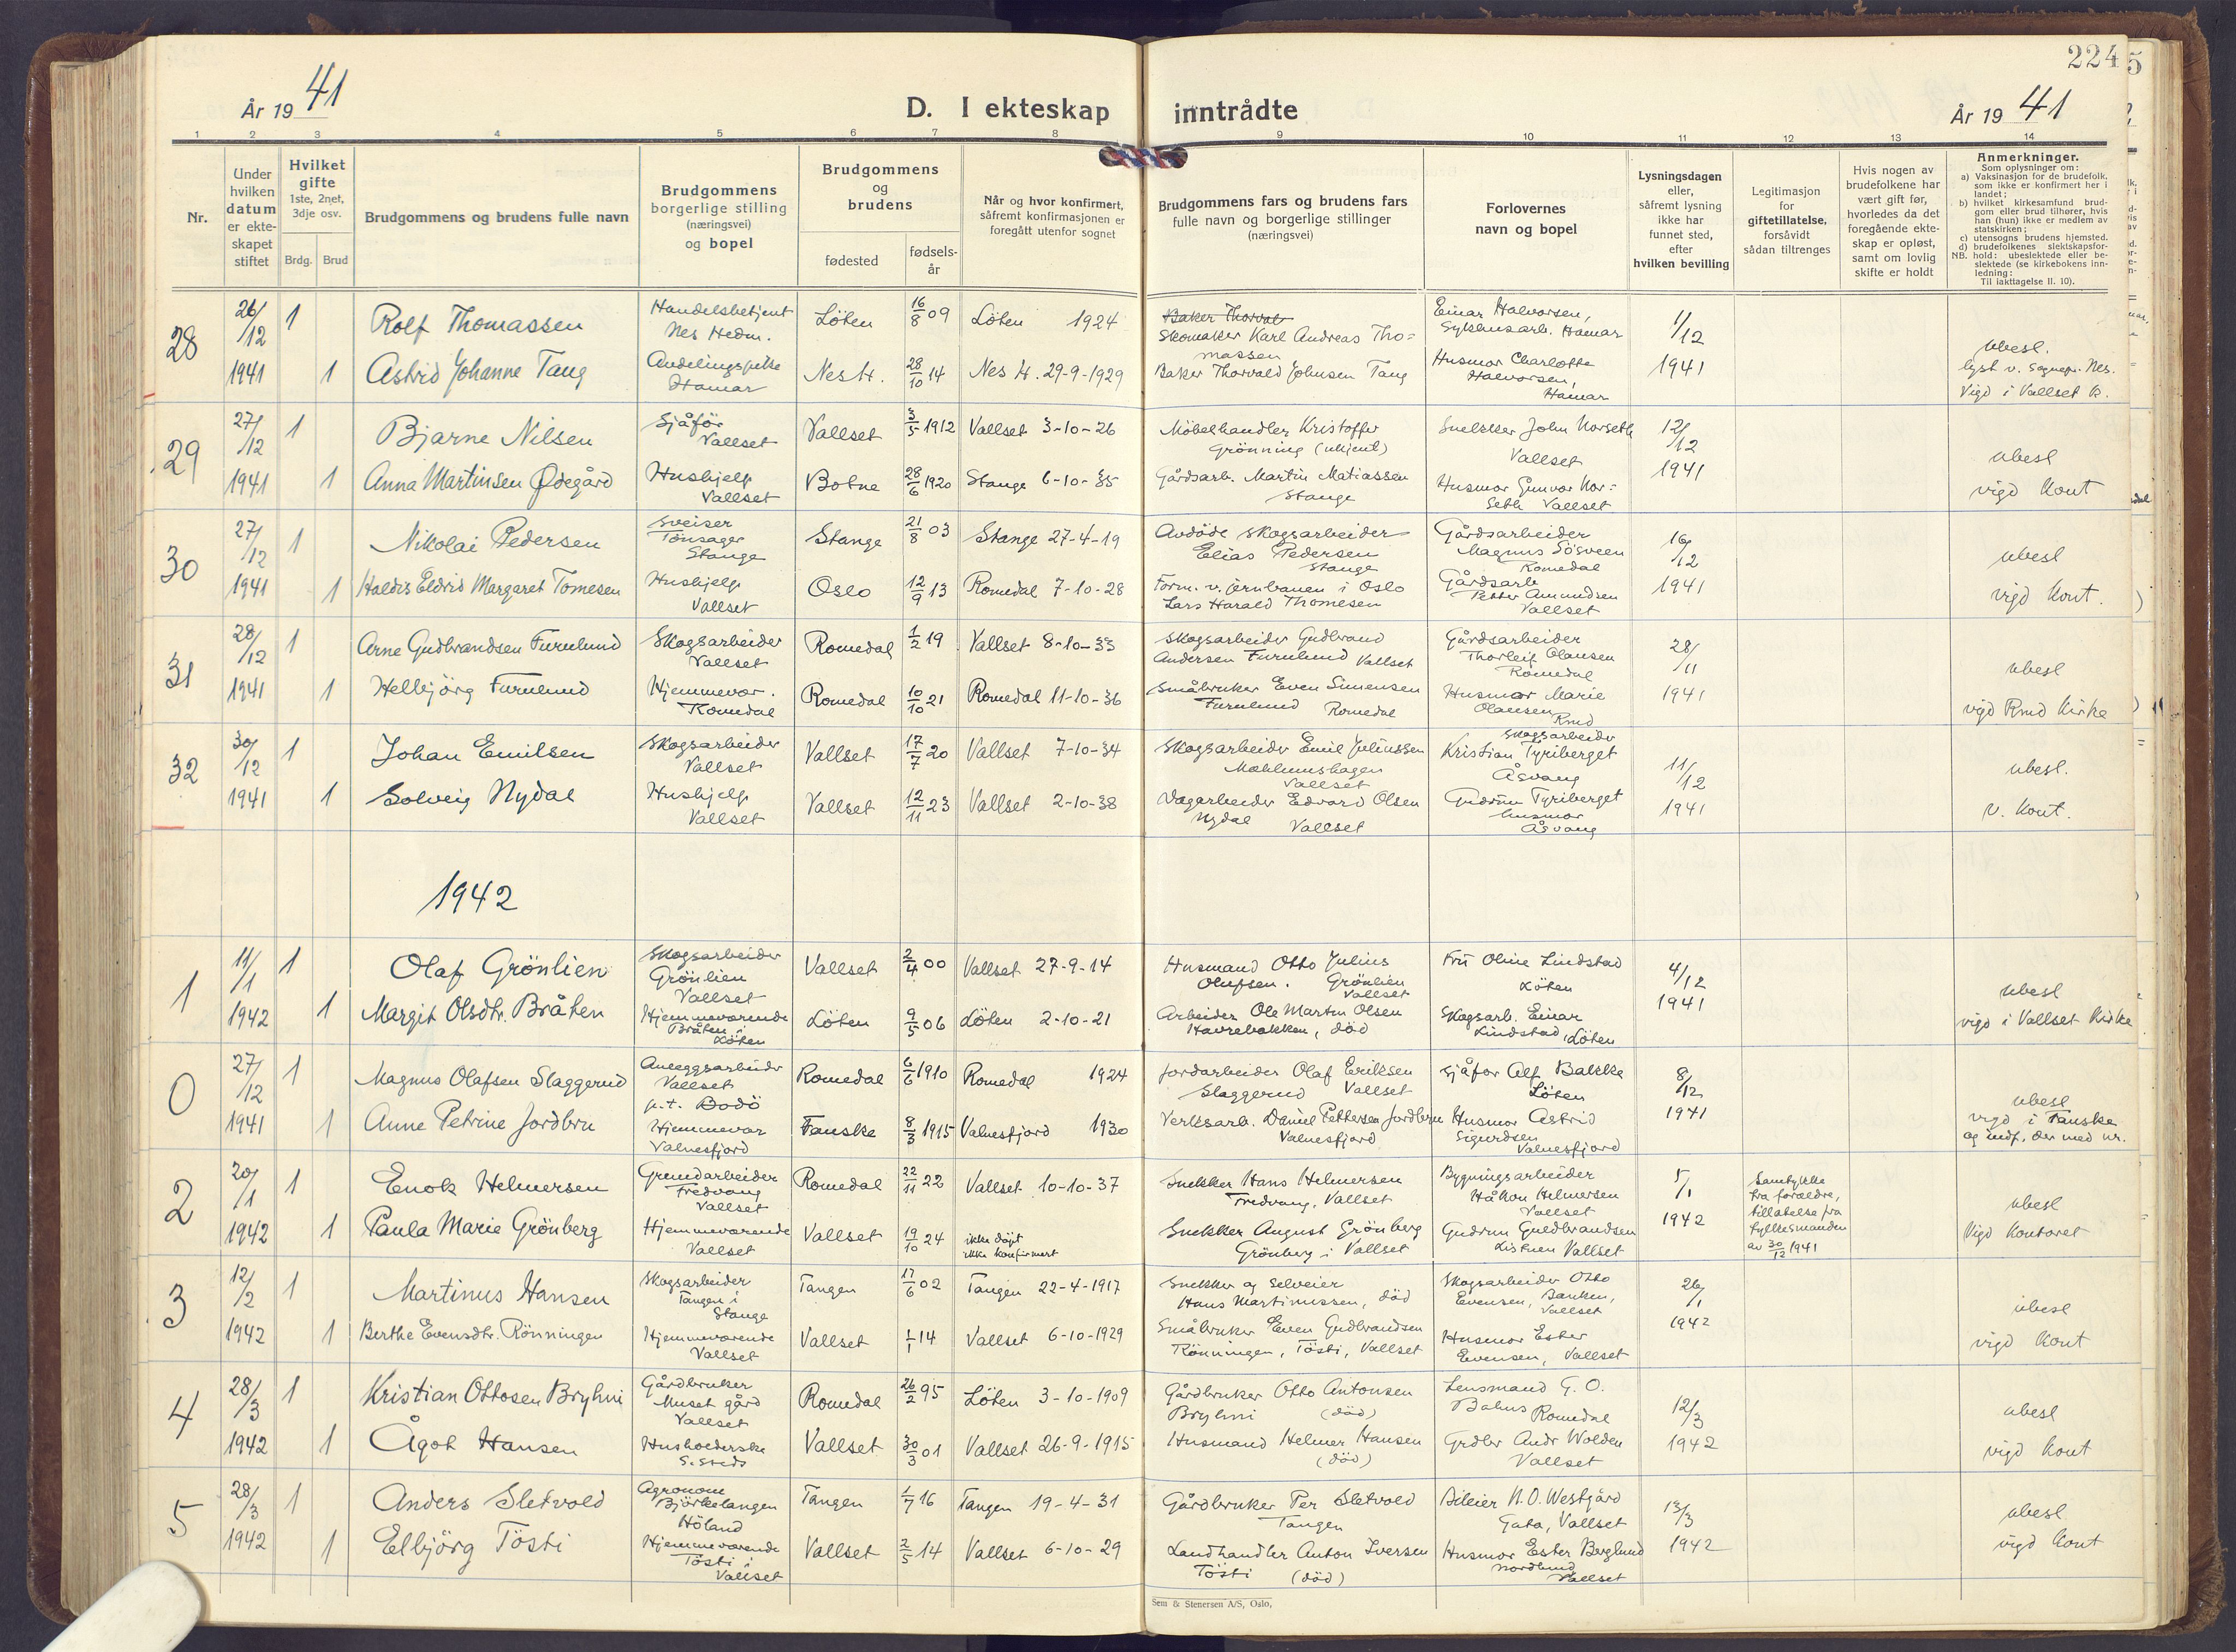 224
År 19 41
D. I ekteskap inntrådte
År 19 41
1 2 3 4 5 6 7 8 9 10 11 12 13 14
Nr.
Under hvilken datum er ekte-skapet stiftet
Hvilket gifte
1ste, 2net, 3dje osv.
Brdg. Brud
Brudgommens og brudens fulle navn
Brudgommens borgerlige stilling (næringsvei) og bopel
Brudgommens og brudens
fødested
fødsels-år
Når og hvor konfirmert, såfremt konfirmasjonen er foregått utenfor sognet
Brudgommens fars og brudens fars fulle navn og borgerlige stillinger (næringsvei)
Forlovernes navn og bopel
Lysningsdagen eller, såfremt lysning ikke har funnet sted, efter hvilken bevilling
Legitimasjon for giftetillatelse, forsåvidt sådan tiltrenges
Hvis nogen av brudefolkene har vært gift før, hvorledes da det foregående ekte-skap er opløst, samt om lovlig skifte er holdt
Anmerkninger.
Som oplysninger om:
a) Vaksinasjon for de brudefolk. som ikke er konfirmert her i landet;
b) hvilket kirkesamfund brud-gom eller brud tilhører, hvis han (hun) ikke er medlem av statskirken;
c) utensogns brudens hjemsted.
d) brudefolkenes slektskapsfor-hold: ubeslektede eller be-slektede (se kirkebokens inn-ledning:
NB. Til iakttagelse II. 10).
28 26/12 1941 1 Rolf Thomassen Handelsbetjent Nes Hedm. Löten 16/8 09 Löten 1924 Baker Thorvald Skomaker Karl Andreas Tho=massen Einar Halvorsen, Sykehusarb. Hamar 1/12 1941
1 Astrid Johanne Tang Hamar Nes H. 28/10 14 Nes H. 29-9-1929 Baker Thorvald Johnsen Tang Husmor Charlotte Halvorsen, Hamar ubesl. lyst v. Sognepr. Nes. Vigd i Vallset K.
29 27/12 1941 1 Bjarne Nilsen Sjåför Vallset Vallset 3/5 1912 Vallset 3-10-26 Möbelhandler Kristoffer Grönning (ukjent) Snekker John Norseth Vallset 12/12 1941
1 Anna Martinsen Ødegård Hushjelp Vallset Botne 28/6 1920 Stange 6-10-35 Gårdsarb. Martin Matiassen Stange Husmor Gunvor Nor=seth Vallset ubesl vigd Kont
30 27/12 1941 1 Nikolai Pedersen Sveiser Tönsager Stange Stange 21/8 03 Stange 27-4-19 Avdöde skogsarbeider Elias Pedersen Stange Gårdsarbeider Magnus Sösveen Romedal 16/12 1941
1 Haldis Eldrid Margaret Tomesen Hushjelp Vallset Oslo 12/9 13 Romedal 7-10-28 Form. v. jernbanen i Oslo Lars Harald Thomesen Gårdsarb Petter Amundsen Vallset ubesl vigd Kont.
31 28/12 1941 1 Arne Gudbrandsen Furulund Skogsarbeider Vallset Romedal 1/2 19 Vallset 8-10-33 Skogsarbeider Gudbrand Andersen Furulund Vallset Gårdsarbeider Thorleif Olausen Romedal 28/11 1941
1 Helbjörg Furulund Hjemmevær. Romedal Romedal 10/10 21 Romedal 11-10-36 Småbruker Even Simensen Furulund Romedal Husmor Marie Olausen Rmd ubesl vigd Rmd Kirke
32 30/12 1941 1 Johan Emilsen Skogsarbeider Vallset Vallset 17/7 20 Vallset 7-10-34 Skogsarbeider Emil Juliussen Mæhlumshagen Vallset Skogsarbeider Kristian Tyriberget Åsvang 11/12 1941
1 Solveig Nydal Hushjelp Vallset Vallset 12/11 23 Vallset 2-10-38 Dagarbeider Edvard Olsen Nydal Vallset Gudrun Tyriberget husmor Åsvang ubesl. v. Kont.
1942
1 11/1 1942 1 Olaf Grönlien Skogsarbeider Grönlien Vallset Vallset 2/4 00 Vallset 27-9-14 Husmand Otto Julius Olufsen. Grönlien Vallset Fru Oline Lindstad Löten 4/12 1941
1 Margit Olsdtr. Bråten Hjemmeværende Bråten i Löten Löten 9/5 06 Löten 2-10-21 Arbeider Ole Martin Olsen Havrebakken, död Skogsarb. Einar Lindstad, Löten ubesl vigd i Vallset Kirke
0 27/12 1941 1 Magnus Olafsen Slaggerud Anleggsarbeider Vallset p.t. Bodö Romedal 6/6 1910 Romedal 1924 Jordarbeider Olaf Eriksen Slaggerud Vallset Sjåfør Alf Bakke Löten 8/12 1941
1 Anne Petrine Jordbru Hjemmevær Valnesfjord Fauske 8/3 1915 Valnesfjord 1930 Verksarb. Daniel Pettersen Jordbru Valnesfjord Husmor Astrid Sigurdsen Valnesfjord ubesl vigd i Fauske og indf. der med nr.
2 20/1 1942 1 Enok Helmersen Grundarbeider Fredvang Vallset Romedal 22/11 22 Vallset 10-10-37 Snekker Hans Helmersen Fredvang, Vallset Bygningsarbeider Håkon Helmersen Vallset 5/1 1942 Samtykke fra foreldre, tillatelse fra fylkesmanden av 30/12 1941
1 Paula Marie Grönberg Hjemmeværende Vallset Vallset 19/10 24 ikke döpt ikke konfirmert Snekker August Grönberg Grönberg i Vallset Gudrun Guldbrandsen Vallset ubesl Vigd Kontoret
3 12/2 1942 1 Martinus Hansen Skogsarbeider Tangen i Stange Tangen 17/6 02 Tangen 22-4-1917 Snekker og Selveier Hans Martinussen, död Skogsarbeider Otto Evensen, Banken, Vallset 26/1 1942
1 Berthe Evensdtr. Rönningen Hjemmeværende Vallset Vallset 1/1 14 Vallset 6-10-1929 Småbruker Even Gudbrandsen Rönningen, Tösti, Vallset Husmor Ester Evensen, Vallset ubesl vigd Kont
4 28/3 1942 1 Kristian Ottosen Bryhni Gårdbruker Muset gård Vallset Romedal 26/2 95 Löten 3-10-1909 Gårdbruker Otto Antonsen Bryhni (död) Lensmand G. O. Bahus Romedal 12/3 1942
1 Ågot Hansen Husholderske S. steds Vallset 30/3 01 Vallset 26-9-1915 Husmand Helmer Hansen (död) Grdbr Andr Wolden Vallset ubesl vigd Kont
5 28/3 1942 1 Anders Sletvold Agronom Björkelangen Höland Tangen 1/7 16 Tangen 19-4-31 Gårdbruker Per Sletvold Tangen Bileier N. O. Westgård Gata, Vallset 13/3 1942
1 Elbjörg Tösti Hjemmeværende Tösti i Vallset Vallset 2/5 14 Vallset 6-10-29 Landhandler Anton Iversen Tösti (död) Husmor Ester Berglund Nordlund Vallset ubesl vigd Kont
Sem & Stenersen A/S, Oslo,